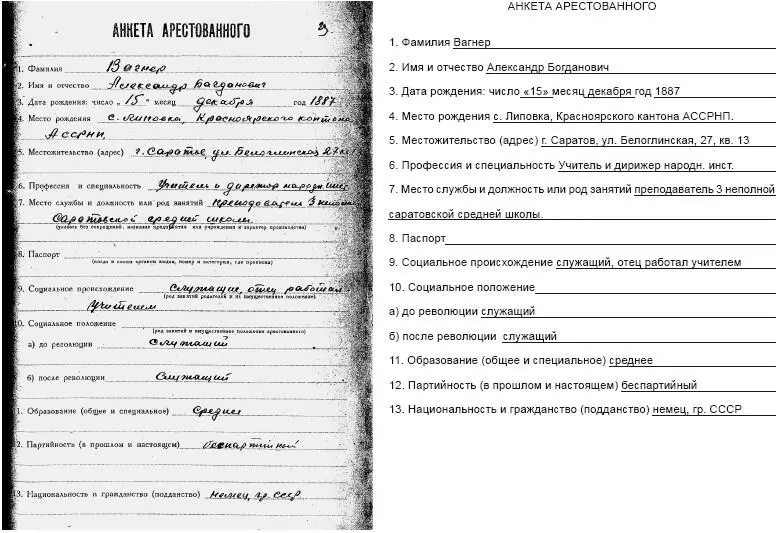 АНКЕТА АРЕСТОВАННОГО
1. Фамилия Вагнер
2. Имя и отчество Александр Багданович
3. Дата рождения: число „15" месяц декабря год 1887
4. Место рождения с. Липовка, Красноярского кантона
АССРНП.
5. Местожительство (адрес) г. Саратов, ул. Белоглинская 27
6. Профессия и специальность Учитель и дирижер народн. инст.
7. Место службы и должность или род занятий преподаватель 3 неполн
Саратовской средней школы.
(указать без сокращений, название предприятия или учреждения и характер производства)
8. Паспорт
(когда и каким органом выдан, номер и категория, где прописан)
9. Социальное происхождение Служащие, отец работал
(род занятий родителей и их имущественное положение)
Учителем
10. Социальное положение
(род занятий и имущественное положение арестованного)
а) до революции Служащий
б) после революции Служащий
1. Образование (общее и специальное) Среднее
2. Партийность (в прошлом и настоящем) беспартийный
3. Национальность и гражданство (подданство) немец, гр. СССР
АНКЕТА АРЕСТОВАННОГО
1. Фамилия Вагнер
2. Имя и отчество Александр Богданович
3. Дата рождения: число «15» месяц декабря год 1887
4. Место рождения с. Липовка, Красноярского кантона АССРНП.
5. Местожительство (адрес) г. Саратов, ул. Белоглинская, 27, кв. 13
6. Профессия и специальность Учитель и дирижер народн. инст.
7. Место службы и должность или род занятий преподаватель 3 неполной
саратовской средней школы.
8. Паспорт
9. Социальное происхождение служащий, отец работал учителем
10. Социальное положение
а) до революции служащий
б) после революции служащий
11. Образование (общее и специальное) среднее
12. Партийность (в прошлом и настоящем) беспартийный
13. Национальность и гражданство (подданство) немец, гр. СССР